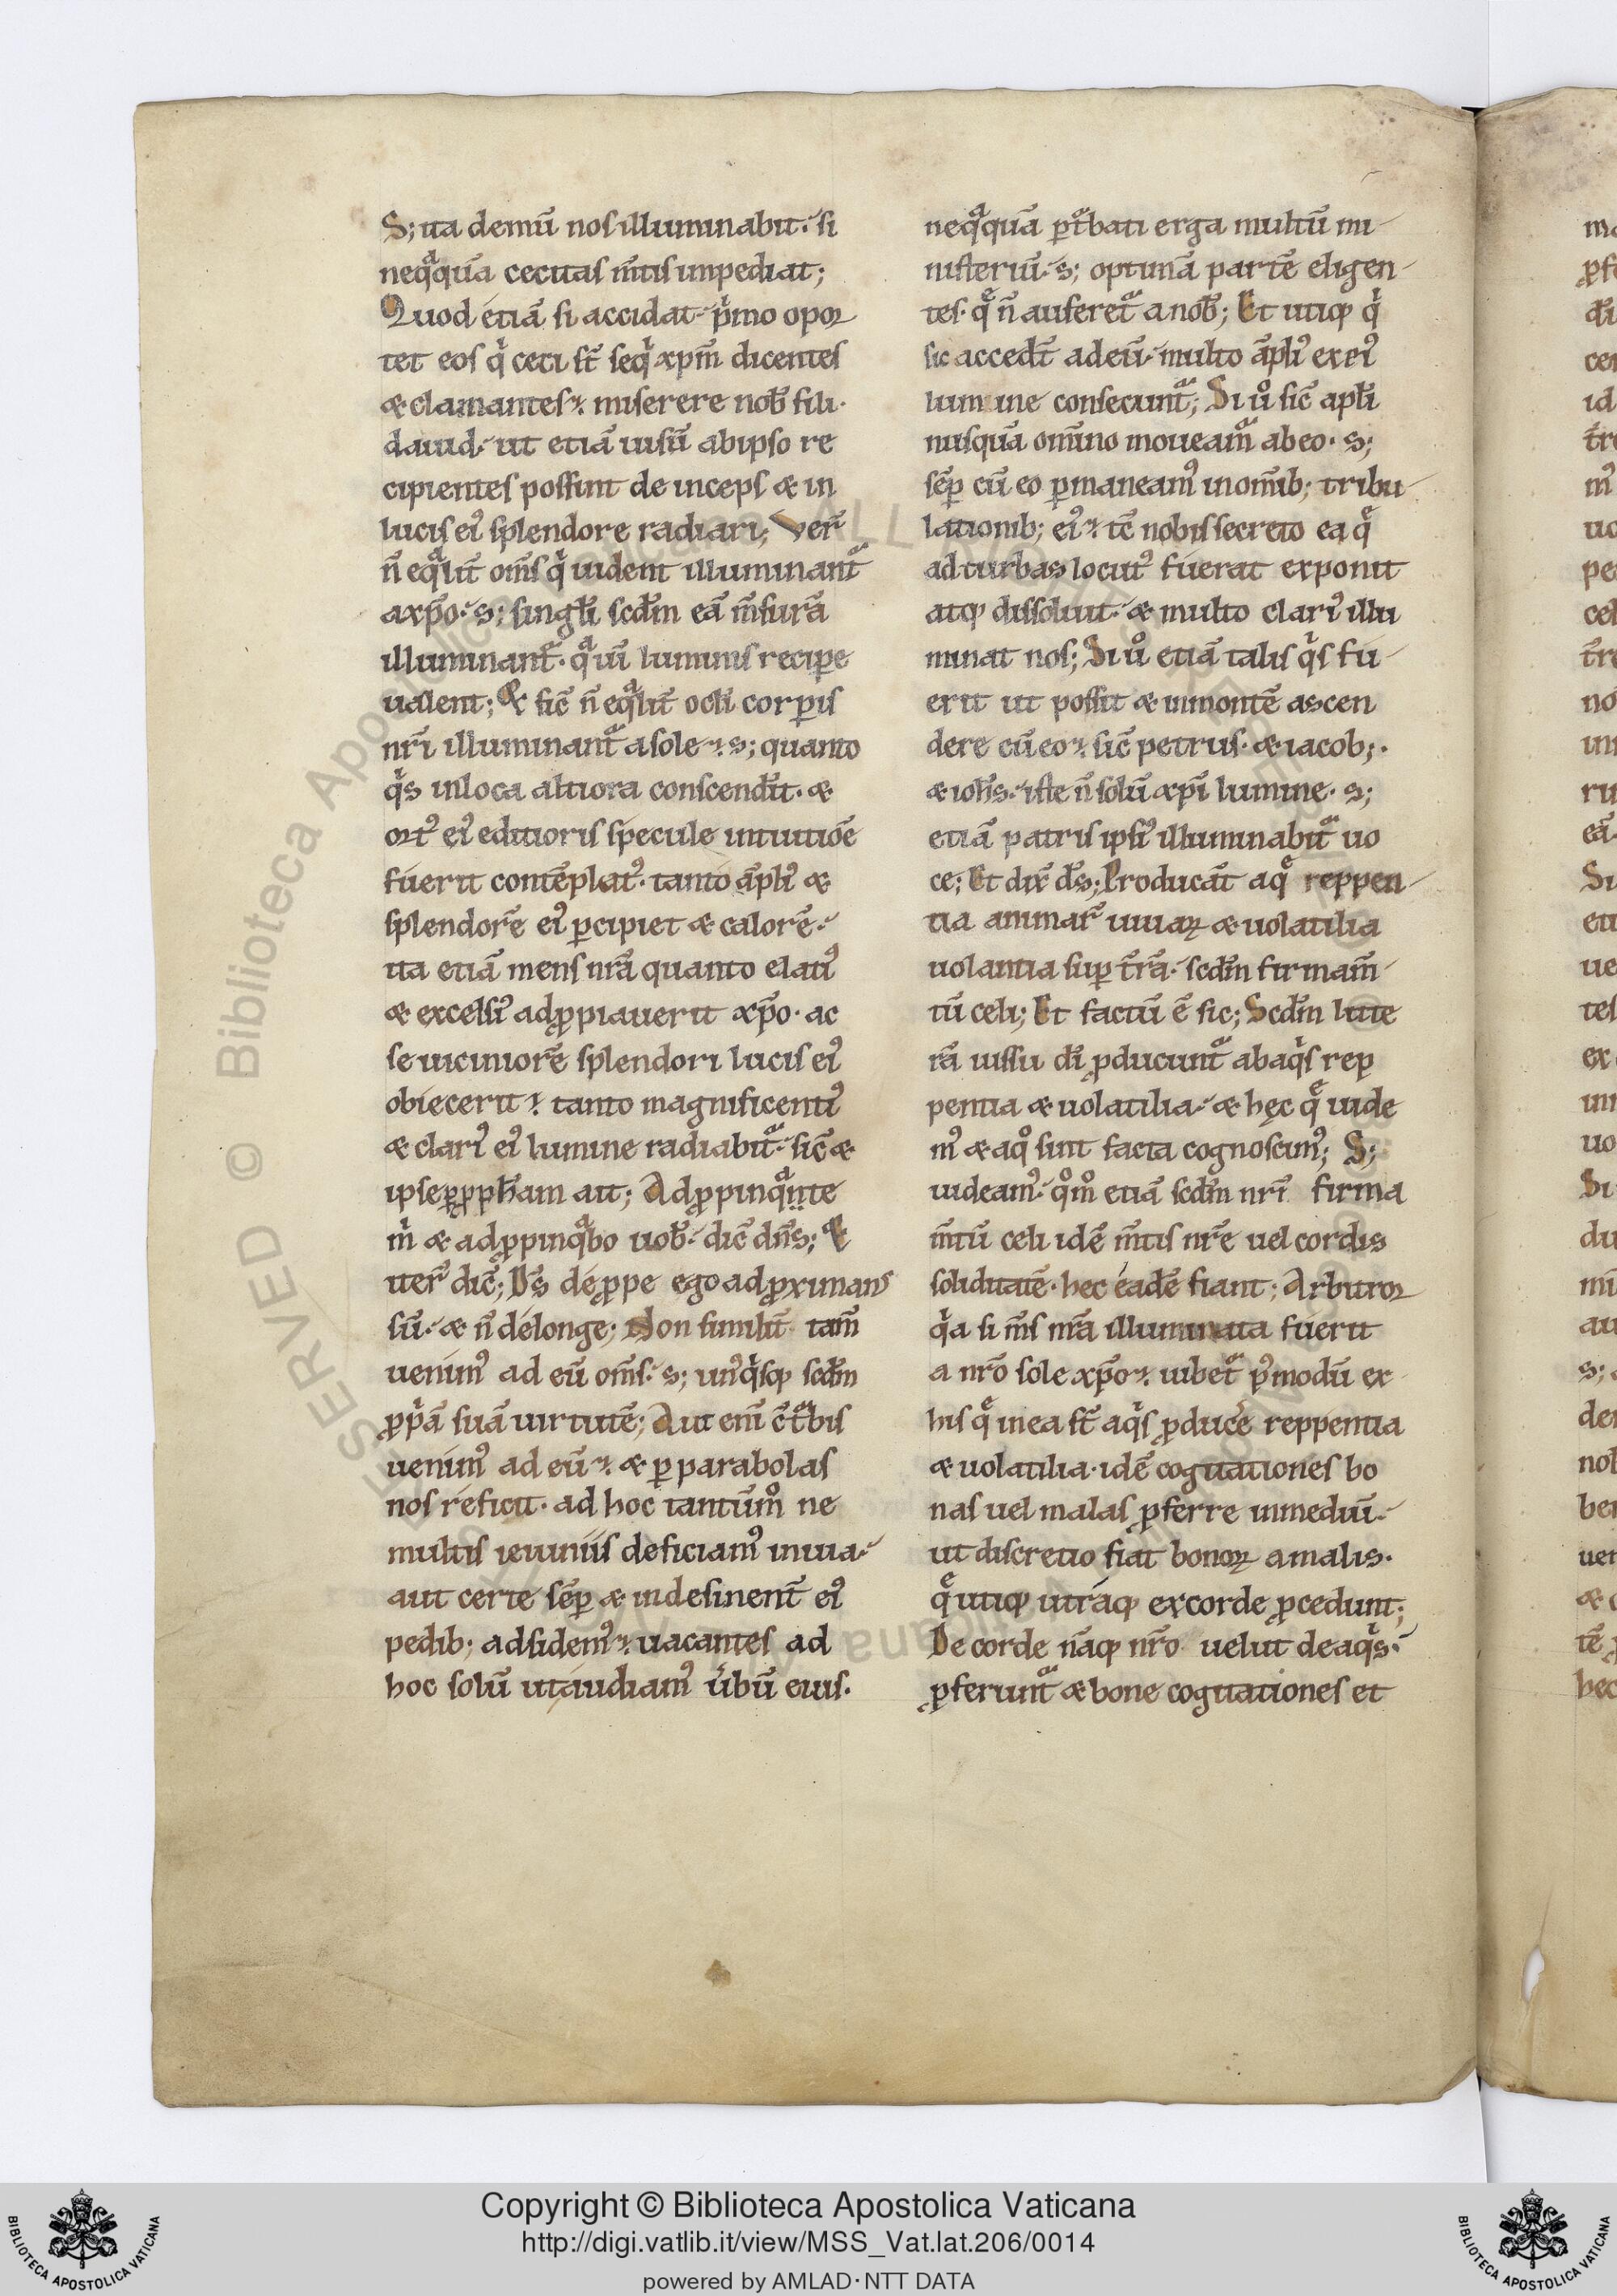 S; ita demū nos illuminabit. si
neqͣquā cecitas m̄tis impediat;
Quod etiā si accidat. pͥmo opor
tet eos qͥ ceci st̄ seqͥ xp̄m dicentes
& clamantes. miserere nob̄ fili.
dauid. ut etiā uisū ab ipso re
cipientes possint de inceps & in
lucis eiꝰ splendore radiari; Ver̄
n̄ eqͣlit̄ om̄s qͥ uident illuminant᷑
a xp̄o. s; singl̄i scd̄m eā m̄surā
illuminant᷑. qͣ uī luminis recipe
ualent; & sic̄ n̄ eqͣlit̄ ocl̄i corꝑis
nr̄i illuminant᷑ a sole. s; quanto
qͥs in loca altiora conscend̄it. &
ortꝰ eiꝰ editioris specule intuitiōe
fuerit contēplatꝰ. tanto āpliꝰ &
splendorē eiꝰ ꝑcipiet & calorē.
ita etiā mens nr̄a quanto elatiꝰ
& excelsiꝰ adꝓpiauerit xp̄o. ac
se uiciniorē splendori lucis eiꝰ
obiecerit. tanto magnificentiꝰ
& clariꝰ eiꝰ lumine radiabit᷑. sic̄ &
ipse ꝑ ꝓph̄am ait; Adꝓpinqͣnte
m̍ & adꝓpinqͣbo uob̄. dic̄ dn̄s; &
iter̄ dic̄; Ds̄ de ꝓpe ego adꝓximans
sū. & n̄ de longe; Non similit̄ tam̄
uenimꝰ ad eū om̄s. s; unꝰqͥsqꝫ scd̄m
ꝓpͥā suā uirtutē; Aut eni᷑ c̄ t᷑bis
uenimꝰ ad eū. & ꝑ parabolas
nos reficit. ad hoc tantūmͦ ne
multis ieiuniis deficiamꝰ in uia.
aut certe sēꝑ & indesinent̄ eiꝰ
pedib; adsidemꝰ. uacantes ad
hoc solū ut audiamꝰ u̍bū eius.
neqͣquā ꝑt᷑bati erga multū mi
nisteriū. s; optimā partē eligen
tes. q̄ n̄ auferet᷑ a nob̄; Et utiqꝫ qͥ
sic accedt̄ ad eū. multo āpliꝰ ex eiꝰ
lumine consecunt᷑; Si uͦ sic̄ apl̄i
nusquā omīno moueam᷑ ab eo. s;
sēꝑ cū eo ꝑmaneamꝰ in om̄ib; tribu
lationib; eiꝰ. tc̄ nobis secreto ea q̄
ad turbas locutꝰ fuerat exponit
atqꝫ dissoluit. & multo clariꝰ illu
minat nos; Si uͦ etiā talis qͥs fu
erit ut possit & in montē ascen
dere cū eo. sic̄ petrus. & iacob;.
& ioh̄s. iste n̄ solū xp̄i lumine. s;
etiā patris ipsiꝰ illuminabit᷑ uo
ce; Et dix̄ ds̄; Producāt aq̄ reppen
tia animar̄ uiuaꝝ & uolatilia
uolantia suꝑ tr̄ā. scd̄m firmam̄
tū celi; Et factū ē sic; Scd̄m litte
rā iussu dī ꝓducunt᷑ ab aqͥs rep
pentia & uolatilia. & hęc q̄ uide
mꝰ & aqͦ sint facta cognoscimꝰ; S;
uideamꝰ. qͦmͦ etiā scd̄m nrī firma
m̄tū celi idē m̄tis nr̄e uel cordis
soliditatē. hec eadē fiant; Arbitror
qͥa si m̄s nr̄a illuminata fuerit
a nr̄o sole xp̄o. iubet᷑ pꝰmodū ex
his q̄ in ea st̄ aqͥs ꝓducere reppentia
& uolatilia. idē cogitationes bo
nas uel malas ꝓferre in mediū.
ut discretio fiat bonoꝝ a malis.
q̄ utiqꝫ utraqꝫ ex corde ꝓcedunt;
De corde nāqꝫ nr̄o uelut de aqͥs.
ꝓferunt᷑ & bone cogitationes et
Copyright © Biblioteca Apostolica Vaticana
http://digi.vatlib.it/view/MSS_Vat.lat.206/0014
powered by AMLAD·NTT DATA
BIBLIOTECA APOSTOLICA VATICANA
BIBLIOTECA APOSTOLICA VATICANA